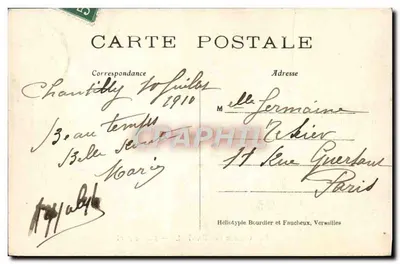 CARTE POSTALE
Correspondance
Adresse
Chantilly 10 Juillet
1910
Beau temps
Belle
Marie
Melle Germaine
Tixier
11 Rue Guersant
Paris
CPAPHIL
Héliotypie Bourdier et Faucheux, Versailles